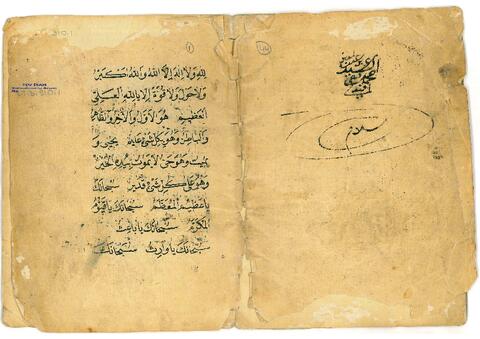 العبد
١
لله ولا اله الا الله والله اكبر
ولا حول ولا قوة الا بالله العلي
العظيم هو الاول والاخر والظاهر
والباطن وهو بكل شئ عليم يحيى و
يميت وهو حي لا يموت بيده الخير
وهو على كل شئ قدير سبحانك
يا عظيم المعظم سبحانك يا قيوم
المكرم سبحانك يا باعث
سبحانك يا وارث سبحانك